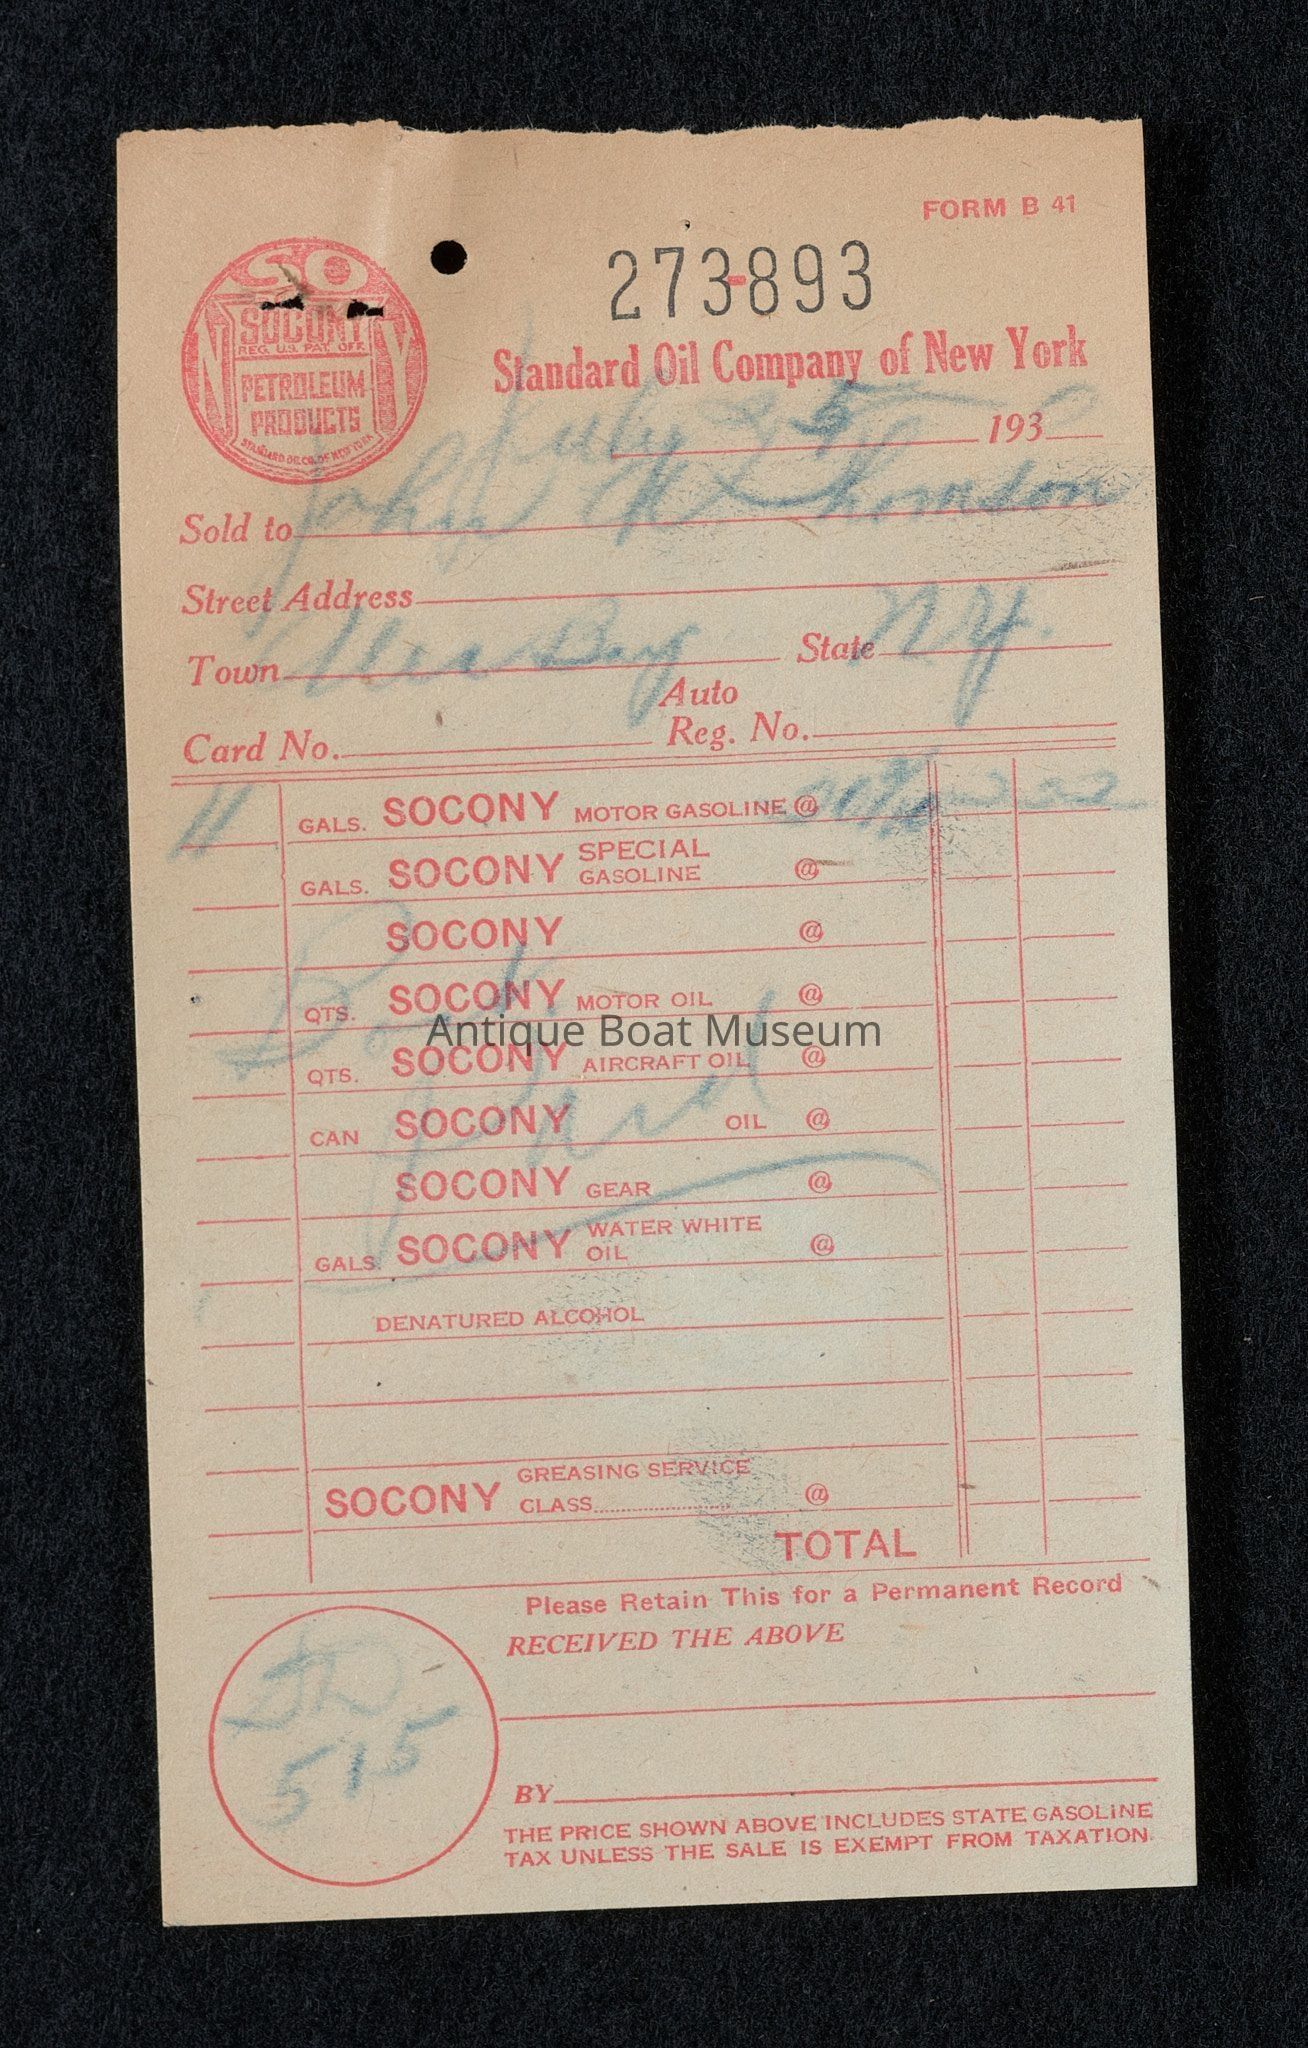 FORM B 41
273-893
SO
SOCONY
REG. U.S. PAT. OFF.
PETROLEUM
PRODUCTS
STANDARD OIL CO. OF NEW YORK
Standard Oil Company of New York
July 25 1930
Sold to John N Thomson
Street Address
Town Alex Bay State N.Y.
Card No. Auto Reg. No.
11 GALS. SOCONY MOTOR GASOLINE @ 2 22
GALS. SOCONY SPECIAL GASOLINE @
SOCONY @
QTS. SOCONY MOTOR OIL @
QTS. SOCONY AIRCRAFT OIL @
CAN SOCONY OIL @
SOCONY GEAR @
GALS. SOCONY WATER WHITE OIL @
DENATURED ALCOHOL
Boat
Paid
Antique Boat Museum
SOCONY GREASING SERVICE CLASS @
TOTAL
Please Retain This for a Permanent Record
RECEIVED THE ABOVE
515
BY
THE PRICE SHOWN ABOVE INCLUDES STATE GASOLINE
TAX UNLESS THE SALE IS EXEMPT FROM TAXATION.